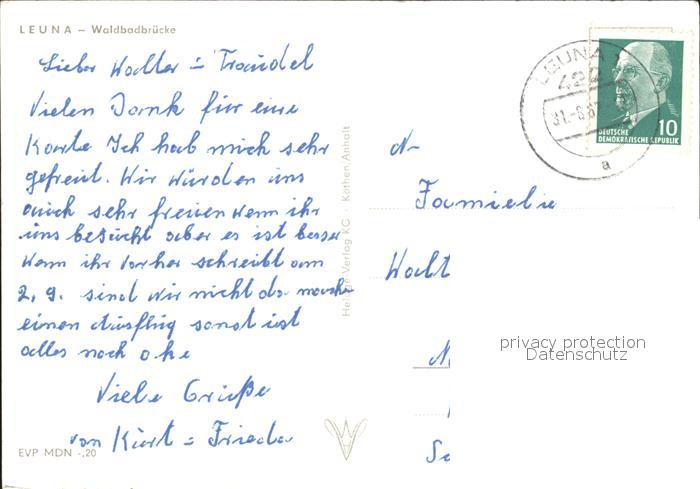 LEUNA – Waldbadbrücke
Lieber Walter = Traudel
Vielen Dank für eine
Karte Ich hab mich sehr
gefreut. Wir würden uns
auch sehr freuen wenn ihr
uns besucht aber es ist besser
wenn ihr vorher schreibt am
2. 9. sind wir nicht da machen
einen Ausflug sonst ist
alles noch oke
Viele Grüße
von Kurt = Frieda
EVP MDN -,20
Heldge-Verlag KG · Köthen Anhalt
LEUNA
422
31.-8.6
a
10
DEUTSCHE
DEMOKRATISCHE REPUBLIK
An
Familie
Walt
privacy protection
Datenschutz